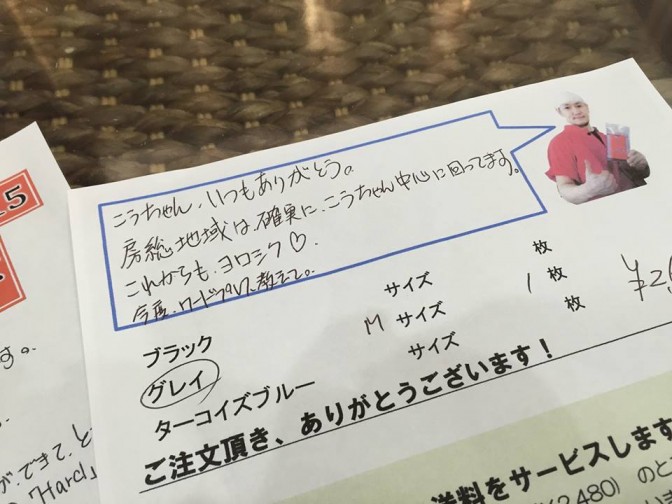 こうちゃん、いつもありがとう。
房総地域は、確実に、こうちゃん中心に回ってます。
これからも、ヨロシク♡.
今度、ワードプレス、教えて。
ブラック サイズ 枚
グレイ M サイズ 1 枚
ターコイズブルー サイズ 枚
ご注文頂き、ありがとうございます！
送料をサービスします
2,480) のと
¥2
15
す。
が、できて、と
"Hard」